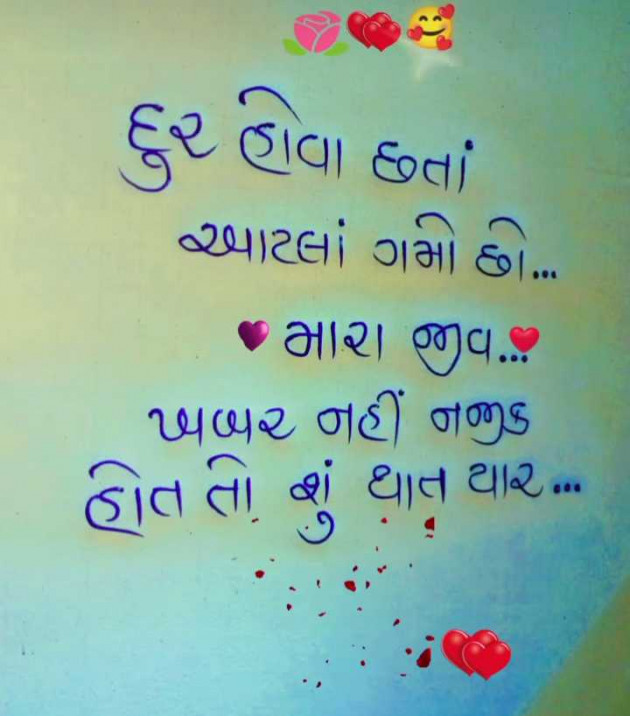 દુર હોવા છતાં
આટલાં ગમો છો...
મારા જીવ...
ખબર નહીં નજીક
હોત તો શું થાત યાર...